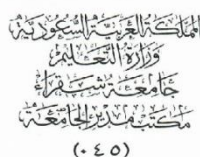 المملكة العربية السعودية
وزارة التعليم
جامعة شقراء
مكتب مدير الجامعة
(٠٤٥)